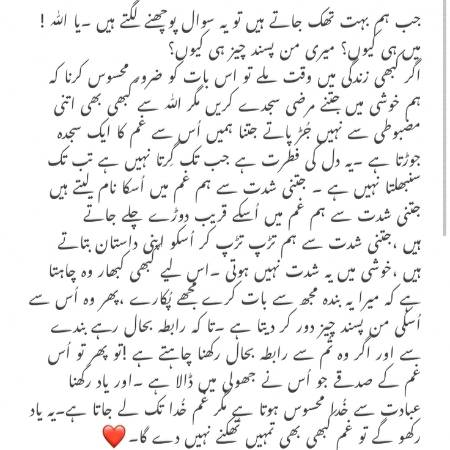 جب ہم بہت تھک جاتے ہیں تو یہ سوال پوچھنے لگتے ہیں ۔یا اللہ !
میں ہی کیوں؟ میری من پسند چیز ہی کیوں؟
اگر کبھی زندگی میں وقت ملے تو اس بات کو ضرور محسوس کرنا کہ
ہم خوشی میں جتنے مرضی سجدے کریں مگر اللہ سے کبھی بھی اتنی
مضبوطی سے نہیں جُڑ پاتے جتنا ہمیں اُس سے غم کا ایک سجدہ
جوڑتا ہے ۔یہ دل کی فطرت ہے جب تک گِرتا نہیں ہے تب تک
سنبھلتا نہیں ہے ۔ جتنی شدت سے ہم غم میں اُسکا نام لیتے ہیں
جتنی شدت سے ہم غم میں اُسکے قریب دوڑے چلے جاتے
ہیں ،جتنی شدت سے ہم تڑپ تڑپ کر اُسکو اپنی داستان بتاتے
ہیں ،خوشی میں یہ شدت نہیں ہوتی ۔اس لیے کبھی کبھار وہ چاہتا
ہے کہ میرا یہ بندہ مجھ سے بات کرے مجھے پُکارے ،پھر وہ اُس سے
اُسکی من پسند چیز دور کر دیتا ہے ۔تا کہ رابطہ بحال رہے بندے
سے اور اگر وہ تُم سے رابطہ بحال رکھنا چاہتے ہے !تو پھر تو اُس
غم کے صدقے جو اُس نے جھولی میں ڈالا ہے ۔اور یاد رکھنا
عبادت سے خُدا محسوس ہوتا ہے مگر غم خُدا تک لے جاتا ہے۔یہ یاد
رکھو گے تو غم کبھی بھی تمہیں تھکنے نہیں دے گا۔ ❤️